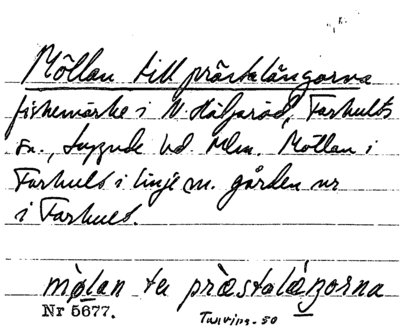 Möllan till prästalängorna
fiskemärke i N. Häljaröd, Farhults
sn., Luggude hd. Mlm. Möllan i
Farhult i linje m. gården nr
i Farhult.
mølan te præstalängorna
Nr 5677.